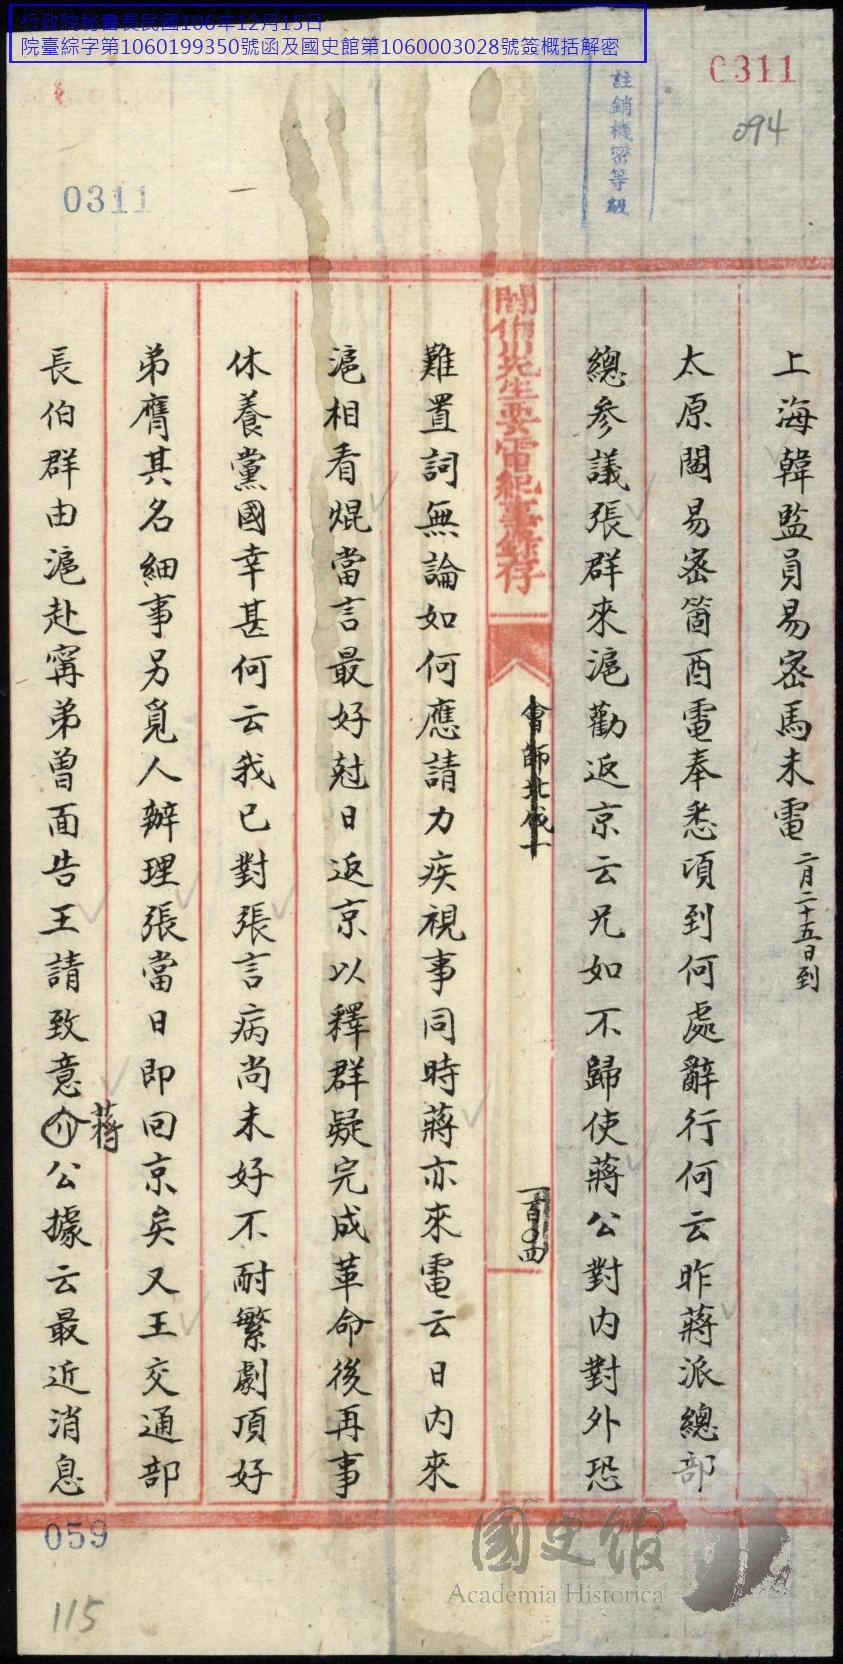 行政院秘書長民國106年12月15日
院臺綜字第1060199350號函及國史館第1060003028號簽概括解密
0311
094
註銷機密等級
0311
上海韓監員易密馬未電二月二十五日到
太原閻易密箇酉電奉悉頃到何處辭行何云昨蔣派總部
總參議張群來滬勸返京云兄如不歸使蔣公對內對外恐
閻伯川先生要電紀事錄存
會師北伐十
一百〇四
難置詞無論如何應請力疾視事同時蔣亦來電云日內來
滬相看焜當言最好尅日返京以釋群疑完成革命後再事
休養黨國幸甚何云我已對張言病尚未好不耐繁劇頂好
弟膺其名細事另覓人辦理張當日即回京矣又王交通部
長伯群由滬赴甯弟曾面告王請致意介公據云最近消息
蔣
059
115
國史館
Academia Historica